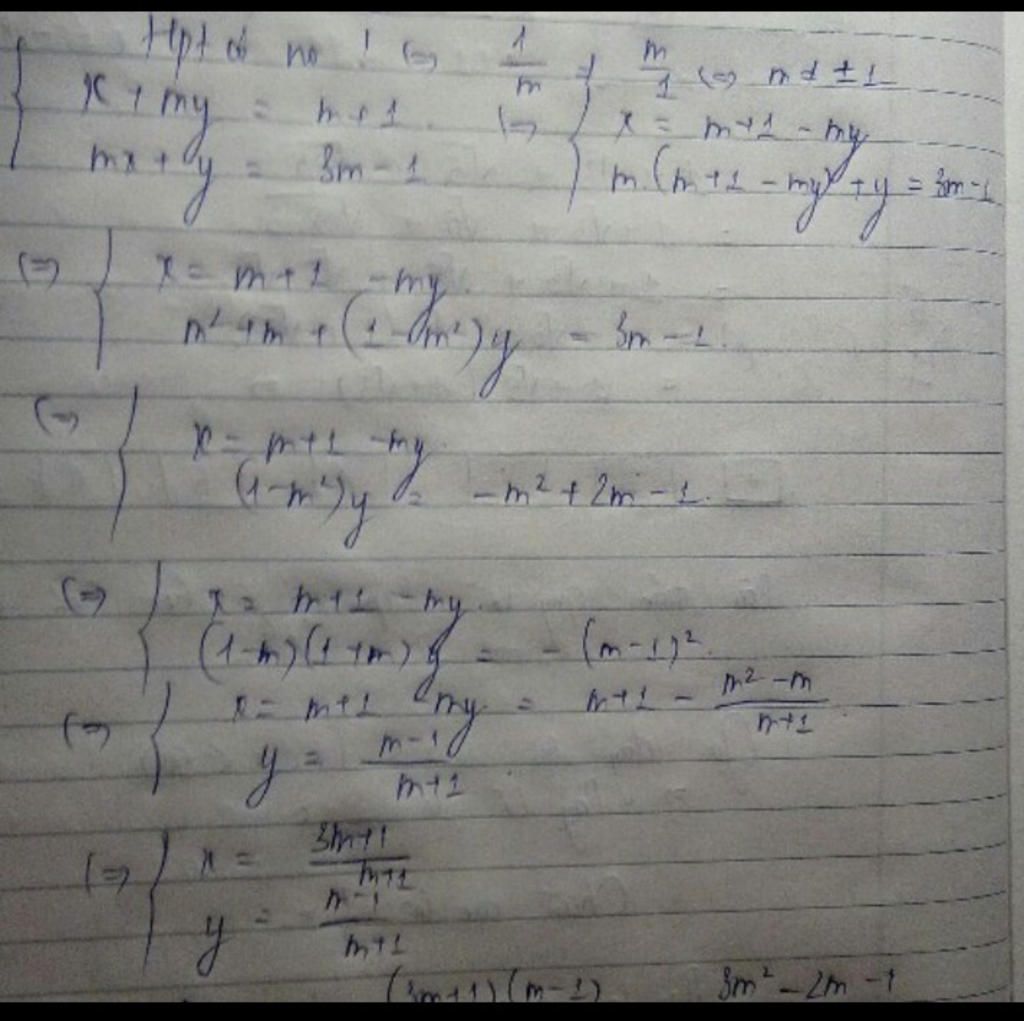 Hpt có no ! (=) 1/m ≠ m/1 (=) m ≠ ±1
{ x + my = m+1 (=) { x = m+1 - my
mx + y = 3m - 1 m(m+1 - my) + y = 3m-1
(=) { x = m+1 - my
m² + m + (1-m²)y = 3m - 1.
(=) { x = m+1 - my.
(1-m²)y = -m² + 2m - 1.
(=) { x = m+1 - my.
(1-m)(1+m) y = - (m-1)².
(=) { x = m+1 - my = m+1 - (m²-m)/(m+1)
y = (m-1)/(m+1).
(=) { x = (3m+1)/(m+1)
y = (m-1)/(m+1)
(3m+1)(m-1) 3m² - 2m - 1